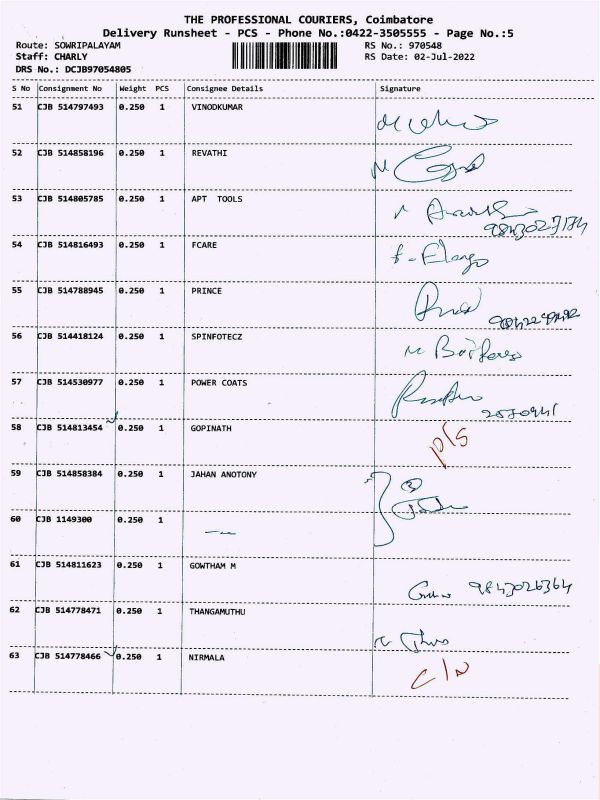 THE PROFESSIONAL COURIERS, Coimbatore
Delivery Runsheet - PCS - Phone No.:0422-3505555 - Page No.:5
Route: SOWRIPALAYAM RS No.: 970548
Staff: CHARLY RS Date: 02-Jul-2022
DRS No.: DCJB97054805
S No Consignment No Weight PCS Consignee Details Signature
51 CJB 514797493 0.250 1 VINODKUMAR
52 CJB 514858196 0.250 1 REVATHI
53 CJB 514805785 0.250 1 APT TOOLS
54 CJB 514816493 0.250 1 FCARE
55 CJB 514788945 0.250 1 PRINCE
56 CJB 514418124 0.250 1 SPINFOTECZ
57 CJB 514530977 0.250 1 POWER COATS
58 CJB 514813454 0.250 1 GOPINATH P/S
59 CJB 514858384 0.250 1 JAHAN ANOTONY
60 CJB 1149300 0.250 1
61 CJB 514811623 0.250 1 GOWTHAM M 9843026364
62 CJB 514778471 0.250 1 THANGAMUTHU
63 CJB 514778466 0.250 1 NIRMALA C/N